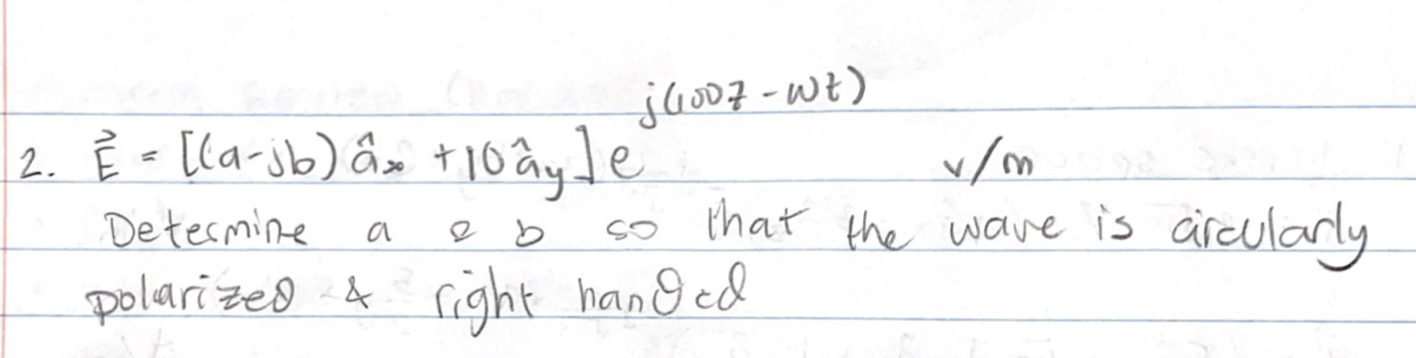 j(100z - wt)
2. E⃗ = [(a-jb) âₓ + 10 â_y] e v/m
Determine a & b so that the wave is circularly
polarized & right handed